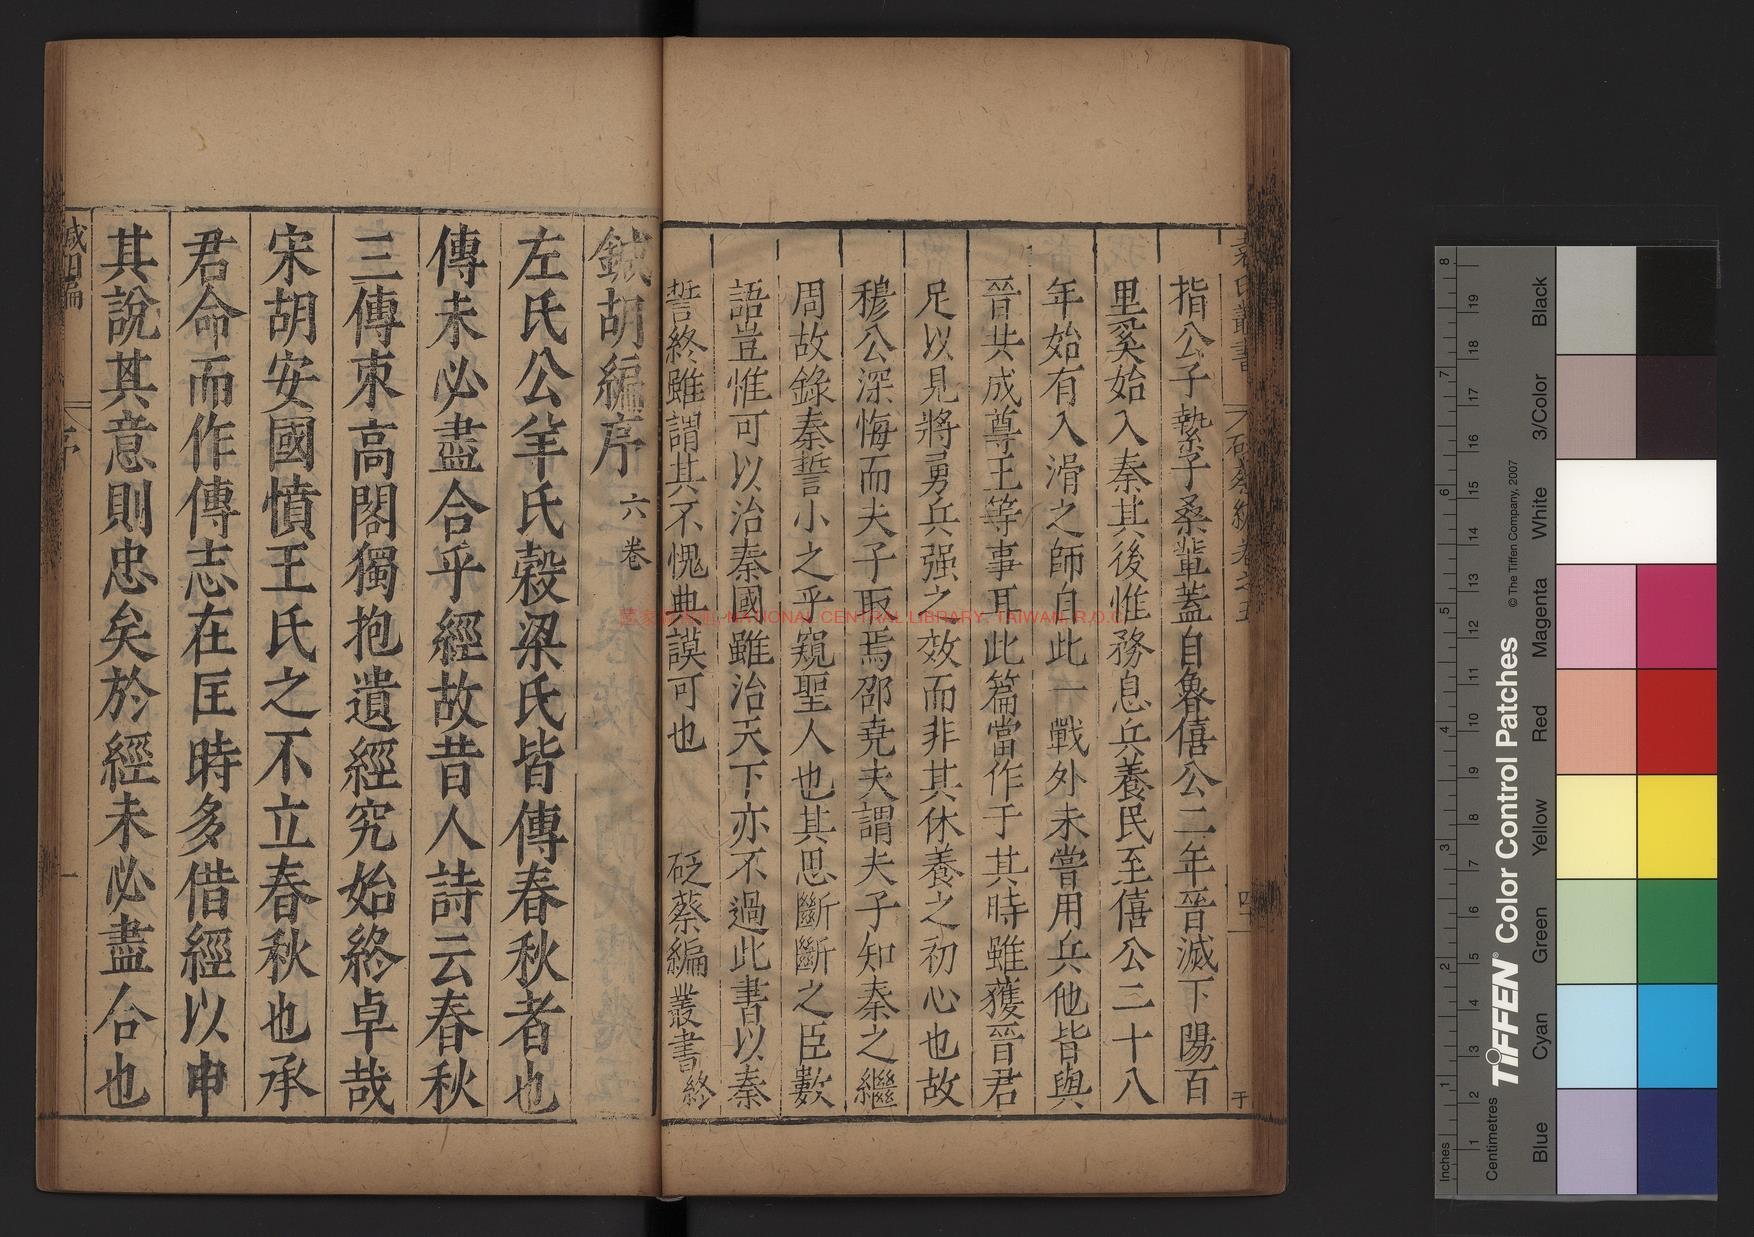 指公子縶子桑輩蓋自魯僖公二年晉滅下陽百
里奚始入秦其後惟務息兵養民至僖公二十八
年始有入滑之師自此一戰外未嘗用兵他皆與
晉共成尊王等事耳此篇當作于其時雖獲晉君
足以見將勇兵强之效而非其休養之初心也故
穆公深悔而夫子取焉邵堯夫謂夫子知秦之繼
周故錄秦誓小之乎窺聖人也其思斷斷之臣數
語豈惟可以治秦國雖治天下亦不過此書以秦
誓終雖謂其不愧典謨可也
砭蔡編 叢書終
鍼胡編序 六卷
左氏公羊氏穀梁氏皆傳春秋者也
傳未必盡合乎經故昔人詩云春秋
三傳束高閣獨抱遺經究始終卓哉
宋胡安國憤王氏之不立春秋也承
君命而作傳志在匡時多借經以申
其說其意則忠矣於經未必盡合也
序
一
NATIONAL CENTRAL LIBRARY, TAIWAN, R.O.C
TIFFEN Color Control Patches
© The Tiffen Company, 2007
Inches
Centimetres
Blue
Cyan
Green
Yellow
Red
Magenta
White
3/Color
Black